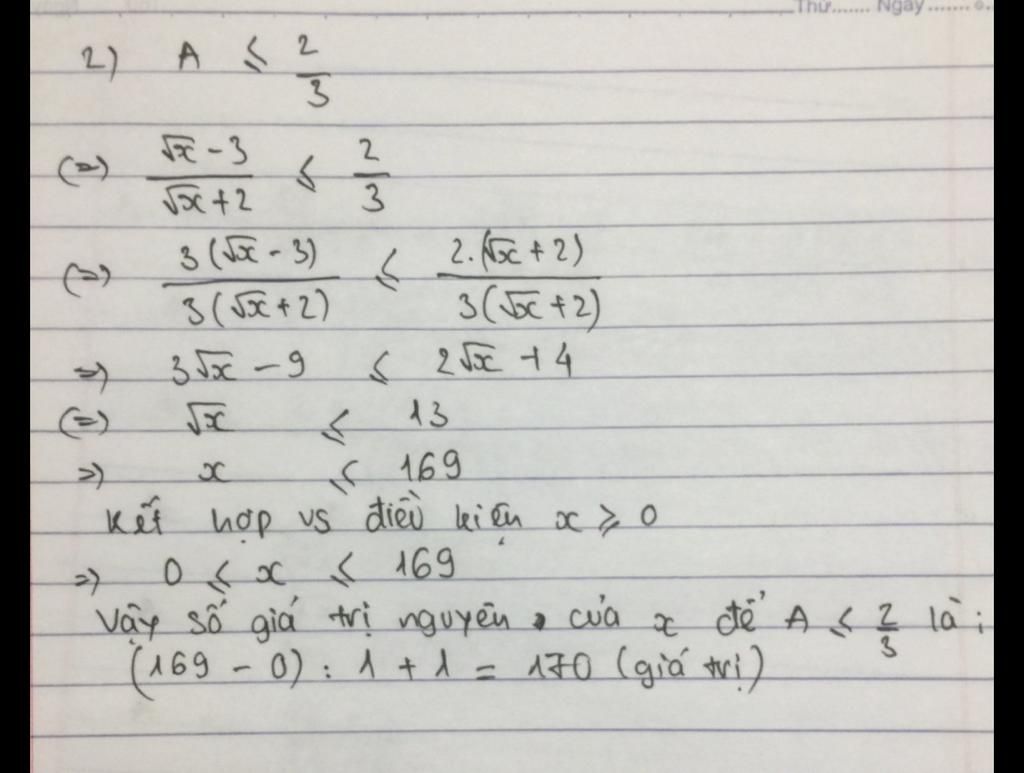 Thứ....... Ngày.......
2) A ≤ 2/3
(=) (√x - 3)/(√x + 2) ≤ 2/3
(=) 3(√x - 3)/3(√x + 2) ≤ 2.(√x + 2)/3(√x + 2)
=) 3√x - 9 ≤ 2√x + 4
(=) √x ≤ 13
=) x ≤ 169
Kết hợp vs điều kiện x ≥ 0
=) 0 ≤ x ≤ 169
Vậy số giá trị nguyên của x để A ≤ 2/3 là:
(169 - 0) : 1 + 1 = 170 (giá trị)